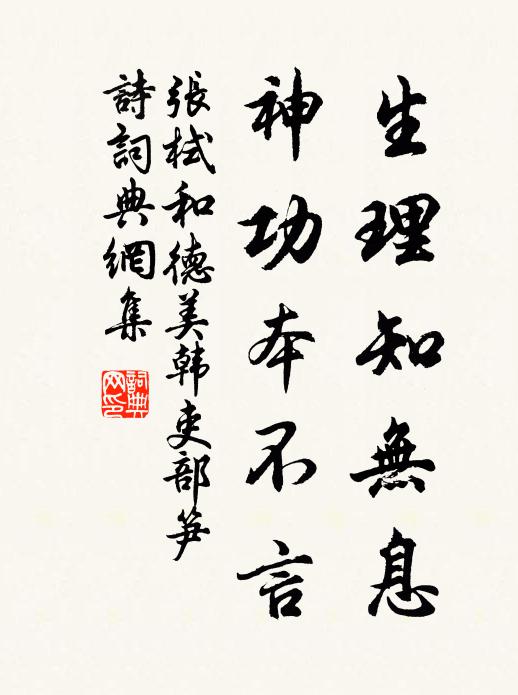 生理知無息
神功本不言
張栻和德美韩吏部笋
詩詞典網集
詞典网印